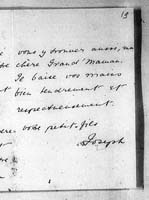 13
vous y trouver aussi, ma
chère Grand Maman.
Je baise vos mains
bien tendrement et
respectueusement.
votre petit-fils
Joseph